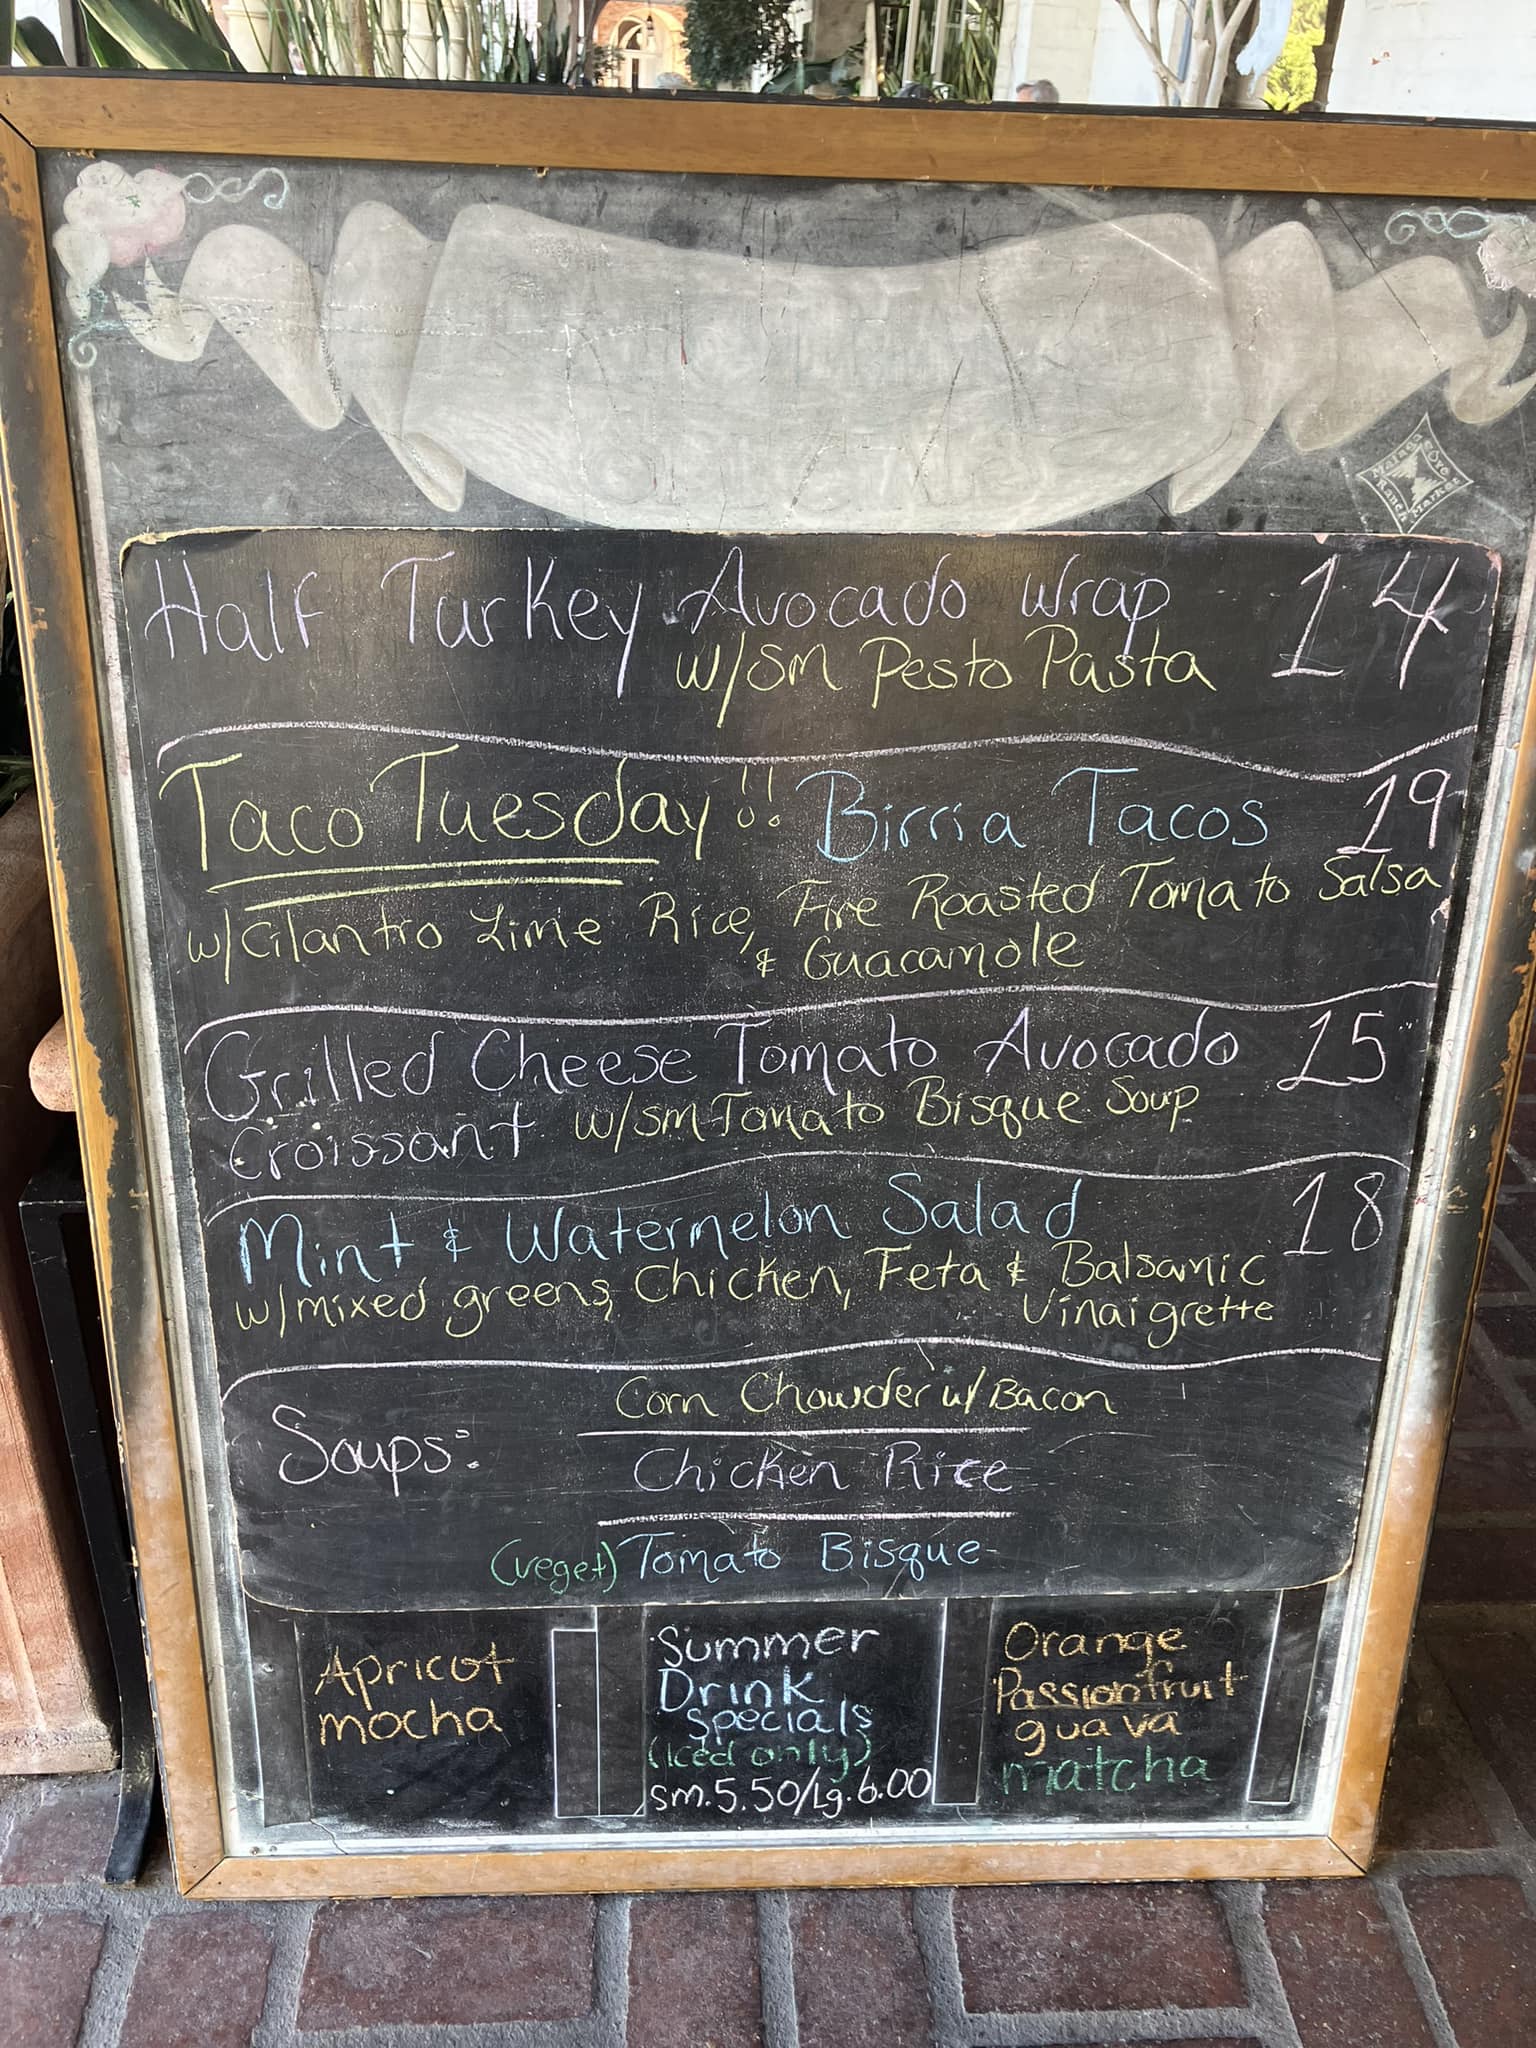 Malaga Cove
Ranch Market
Half Turkey Avocado Wrap 14
w/sm Pesto Pasta
Taco Tuesday!! Birria Tacos 19
w/Cilantro Lime Rice, Fire Roasted Tomato Salsa
& Guacamole
Grilled Cheese Tomato Avocado 15
Croissant w/sm Tomato Bisque Soup
Mint & Watermelon Salad 18
w/mixed greens, Chicken, Feta & Balsamic
Vinaigrette
Soups:
Corn Chowder w/Bacon
Chicken Rice
(veget) Tomato Bisque
Apricot
mocha
Summer
Drink
specials
(Iced only)
sm.5.50/Lg.6.00
Orange
Passionfruit
guava
matcha